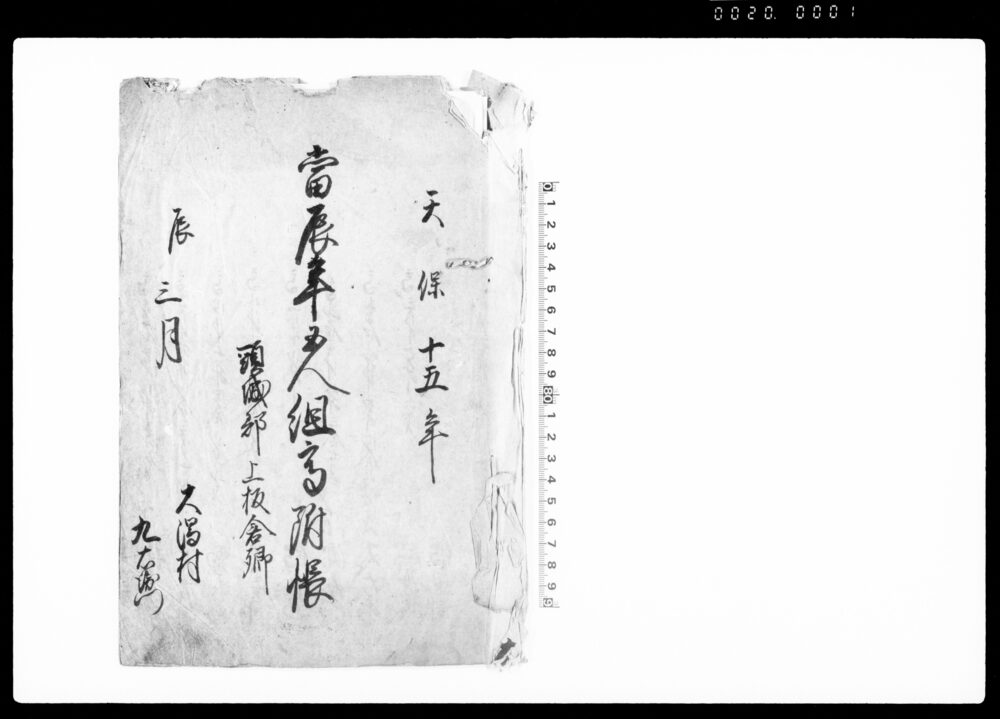 0020. 0001
天保十五年
當辰年五人組高附帳
頸城郡上板倉郷
辰三月
大濁村
九右衛門
大
0 1 2 3 4 5 6 7 8 9 10 1 2 3 4 5 6 7 8 9